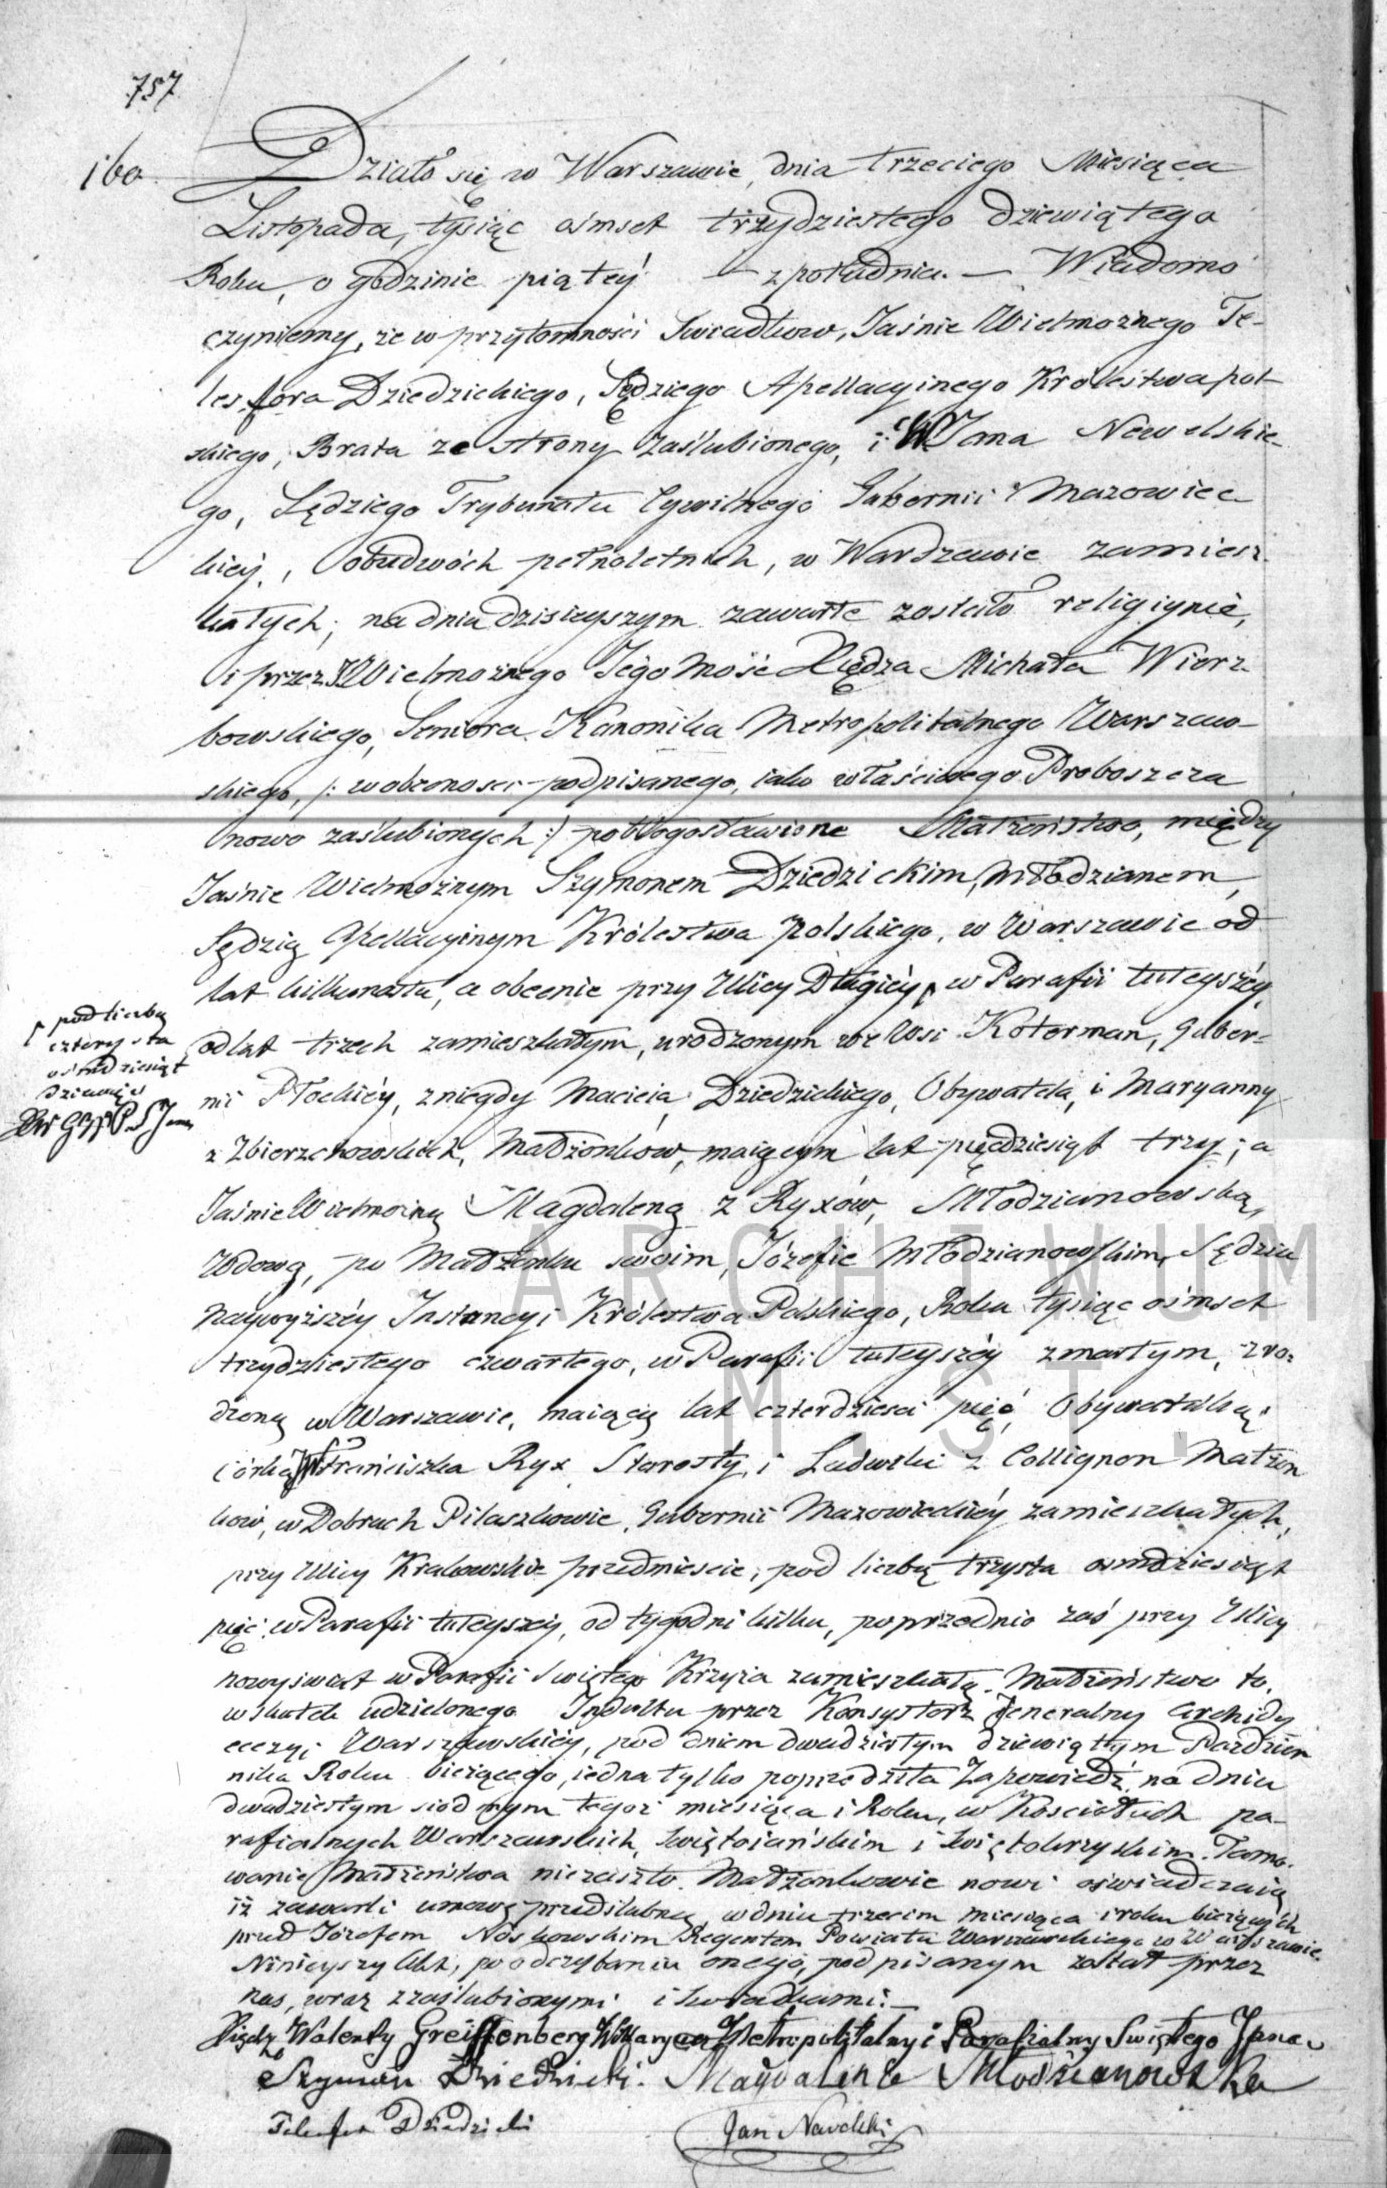 757
160
Działo się w Warszawie, dnia trzeciego Miesiąca
Listopada, tysiąc ośmset trzydziestego dziewiątego
Roku, o godzinie piątéy — z południa. — Wiadomo
czyniemy, że w przytomności Świadków, Jaśnie Wielmożnego Te-
lesfora Dziedzickiego, Sędziego Apellacyinego Królestwa pol-
skiego, Brata ze strony Zaślubionego, i W Jana Nowolskie-
go, Sędziego Trybunału Cywilnego Gubernii Mazowiec
kiéy, obudwóch pełnoletnich, w Warszawie zamiesz
kałych; na dniu dzisieyszym zawarte zostało religiynie,
i przez Wielmożnego Jego Mość Xiędza Michała Wierz
bowskiego, Seniora Kanonika Metropolitalnego Warszaw-
skiego, /: w obecności podpisanego, iako właściwego Proboszcza
nowo zaślubionych :/ pobłogosławione Małżeństwo, między
Jaśnie Wielmożnym Szymonem Dziedzickim, Młodzianem,
Sędzią Apellacyinym Królestwa Polskiego, w Warszawie od
lat kilkunastu, a obecnie przy Ulicy Długiéy, w Parafii tuteyszéy,
pod liczbą
czterysta
ośmdziesiąt
dziewięć
od lat trzech zamieszkałym, urodzonym we Wsi Koterman, Guber-
nii Płockiéy, z niegdy Macieia Dziedzickiego, Obywatela, i Maryanny
z Zbierzchowskich, Małżonków, maiącym lat pięćdziesiąt trzy; a
Jaśnie Wielmożną Magdaleną z Ryxów, Młodzianowską,
Wdową, po Małżonku swoim, Józefie Młodzianowskim, Sędziu
Naywyższéy Instancyi Królestwa Polskiego, Roku tysiąc ośmset
trzydziestego czwartego, w Parafii tuteyszéy zmarłym, zro-
dzoną w Warszawie, maiącą lat czterdzieści pięć, Obywatelką;
córką Franciszka Ryx Starosty, i Ludwiki z Collignon Małżon
ków, w Dobrach Pilaszkowie, Gubernii Mazowieckiéy zamieszkałych,
przy Ulicy Krakowskie przedmieście, pod liczbą trzysta ośmdziesiąt
pięć, w Parafii tuteyszéy, od tygodni kilku, poprzednio zaś przy Ulicy
nowyświat w Parafii Świętego Krzyża zamieszkałą. Małżeństwo to,
w skutek udzielonego Indultu przez Konsystorz Jeneralny Archidy
ecezyi Warszawskiéy, pod dniem dwudziestym dziewiątym Paździer
nika Roku bieżącego, iedna tylko poprzedziła Zapowiedź, na dniu
dwudziestym siódmym tegoż miesiąca i Roku, w Kościołach pa-
rafialnych Warszawskich, Świętoiańskim i Świętokrzyskim. Tamo-
wanie Małżeństwa niezaszło. Małżonkowie nowi oświadczaią
iż zawarli umowę przedślubną w dniu trzecim miesiąca i roku bieżących
przed Józefem Noskowskim Regentem Powiatu Warszawskiego w Warszawie.
Ninieyszy Akt, po odczytaniu onego, podpisanym został przez
nas, wraz z zaślubionymi i Świadkami. —
Xiądz Walenty Greiffenberg Wikaryusz Metropolitalny i Parafialny Świętego Jana
Szymon Dziedzicki. Magdalena Młodzianowska
Telesfor Dziedzicki
Jan Nowolski
ARCHIWUM
M. ST.